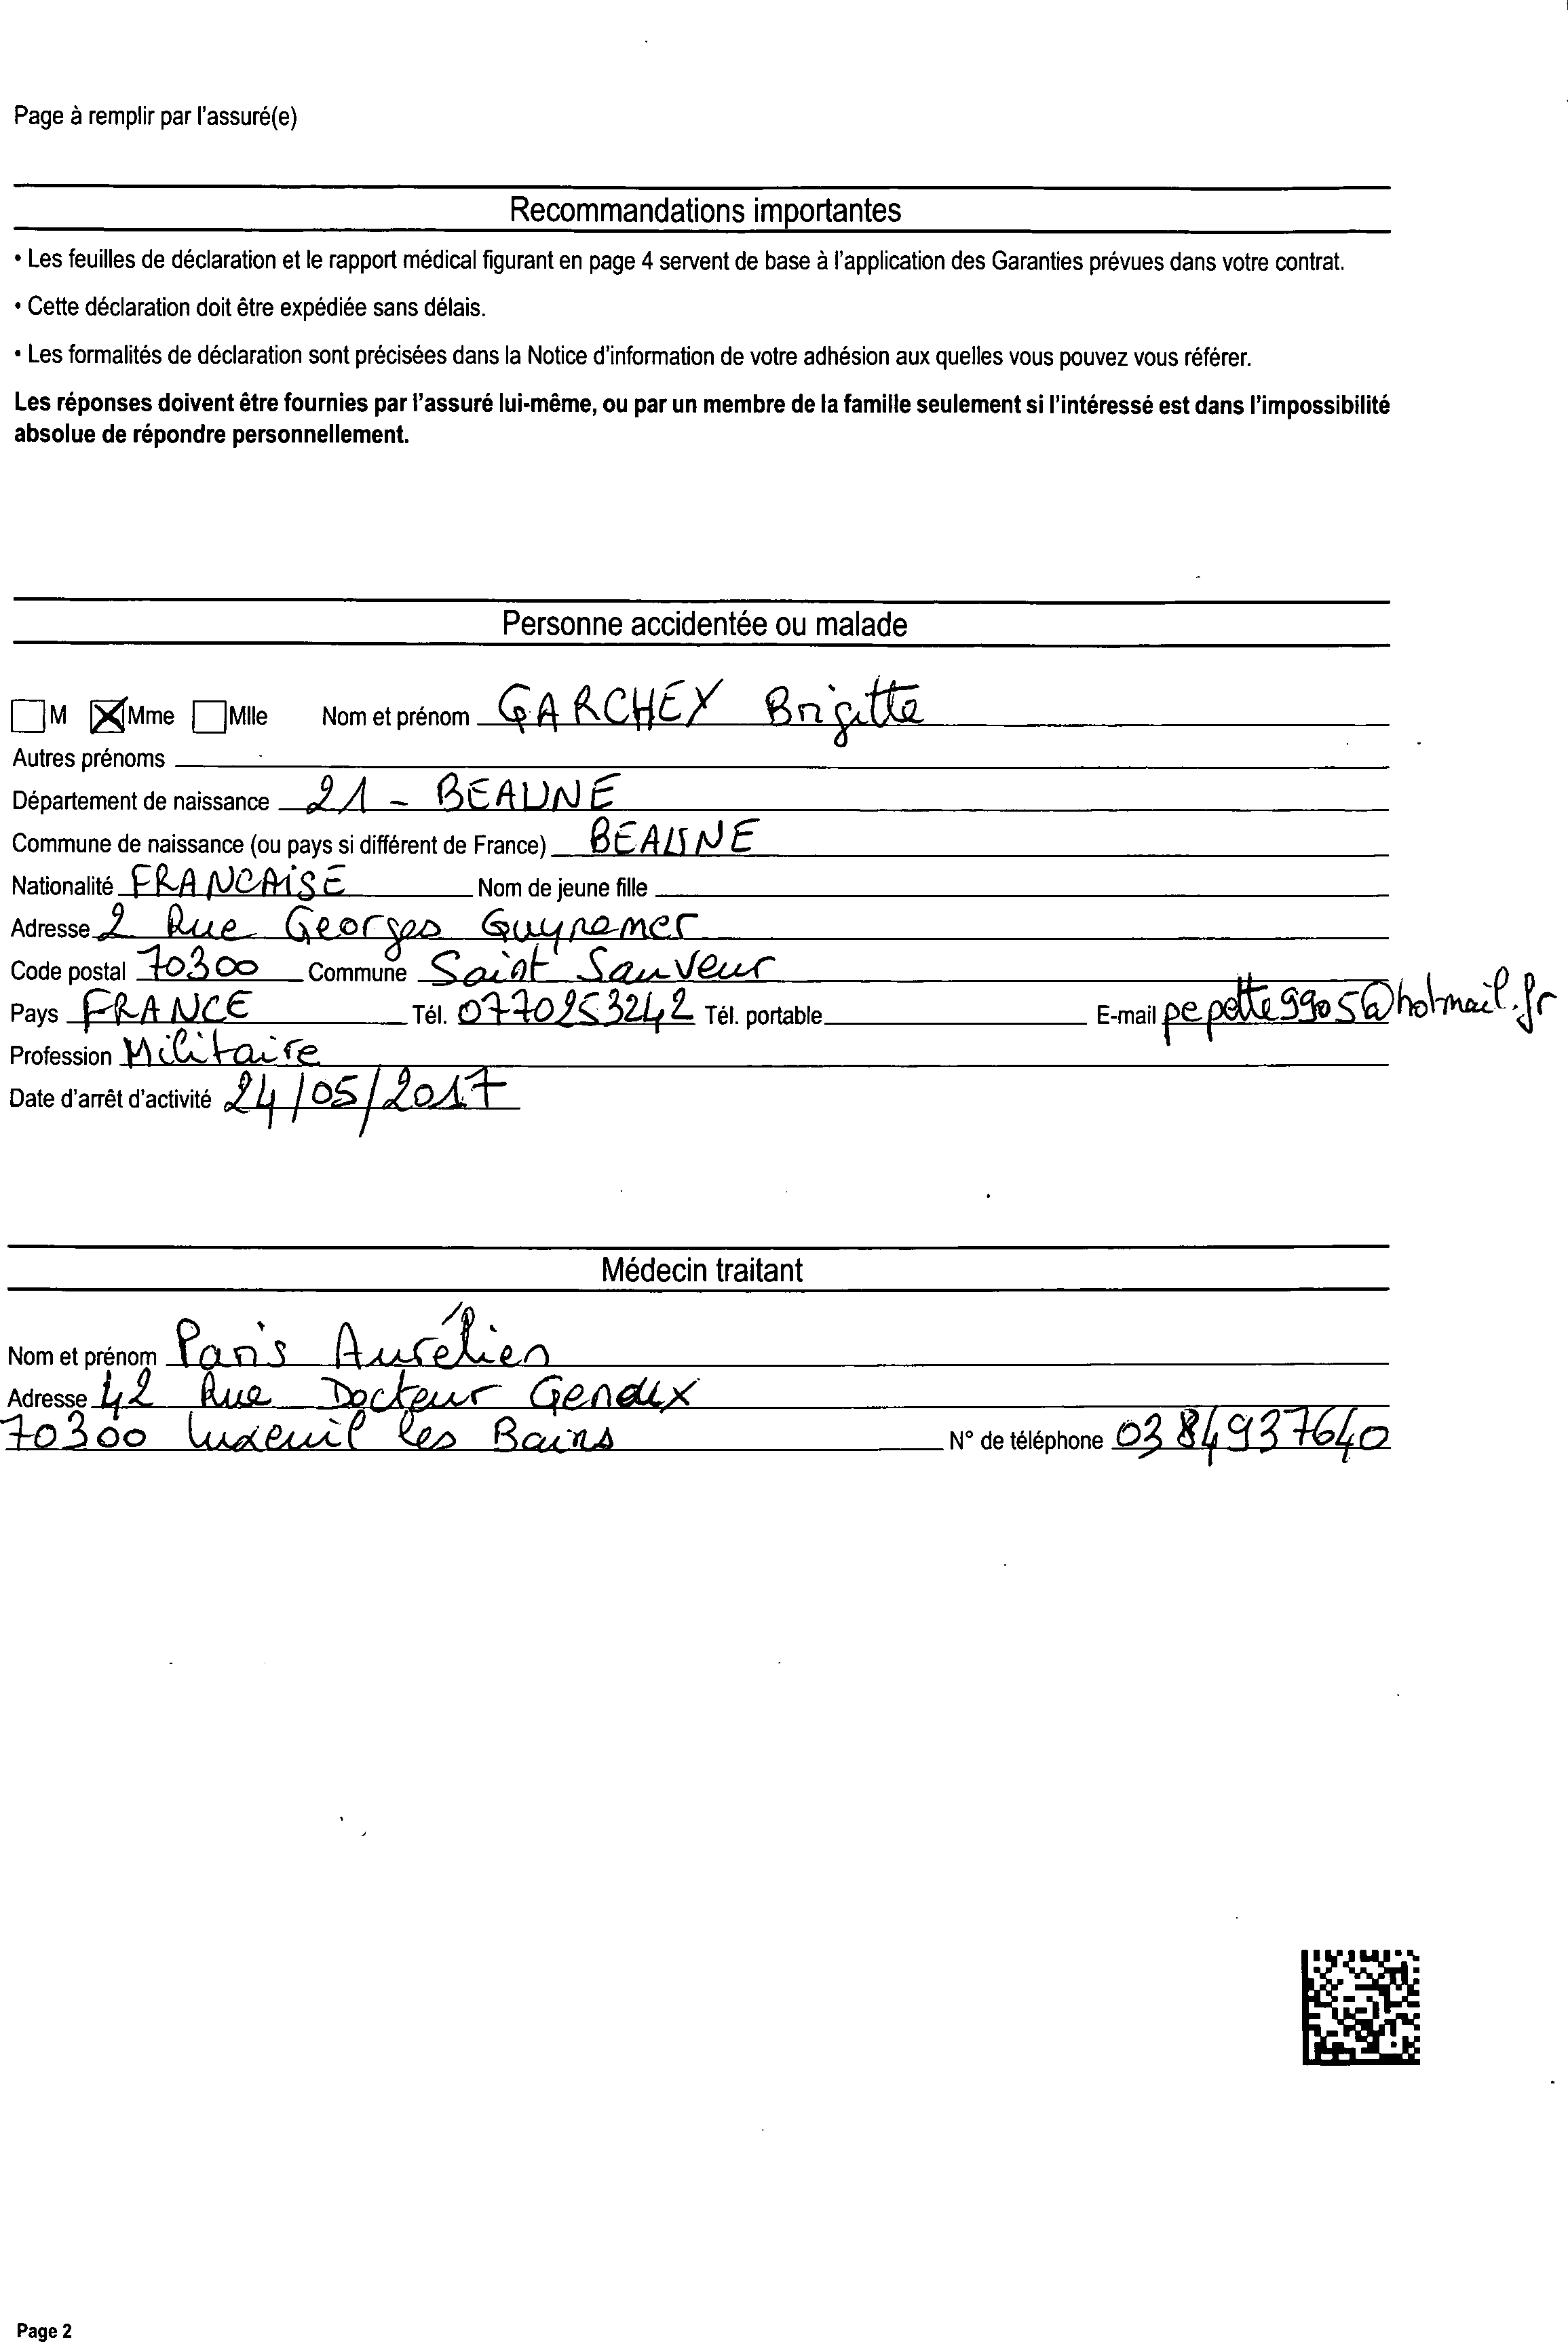 Page à remplir par l'assuré(e)
Recommandations importantes
• Les feuilles de déclaration et le rapport médical figurant en page 4 servent de base à l'application des Garanties prévues dans votre contrat.
• Cette déclaration doit être expédiée sans délais.
• Les formalités de déclaration sont précisées dans la Notice d'information de votre adhésion aux quelles vous pouvez vous référer.
Les réponses doivent être fournies par l'assuré lui-même, ou par un membre de la famille seulement si l'intéressé est dans l'impossibilité
absolue de répondre personnellement.
Personne accidentée ou malade
M Mme Mlle Nom et prénom GARCHEY Brigitte
Autres prénoms
Département de naissance 21 - BEAUNE
Commune de naissance (ou pays si différent de France) BEAUNE
Nationalité FRANCAiSE Nom de jeune fille
Adresse 2 Rue Georges Guynemer
Code postal 70300 Commune Saint Sauveur
Pays FRANCE Tél. 0770253242 Tél. portable E-mail pepette9905@hotmail.fr
Profession Militaire
Date d'arrêt d'activité 24/05/2017
Médecin traitant
Nom et prénom Paris Aurélien
Adresse 42 Rue Docteur
70300 Luxeuil les Bains N° de téléphone 0384937640
Page 2